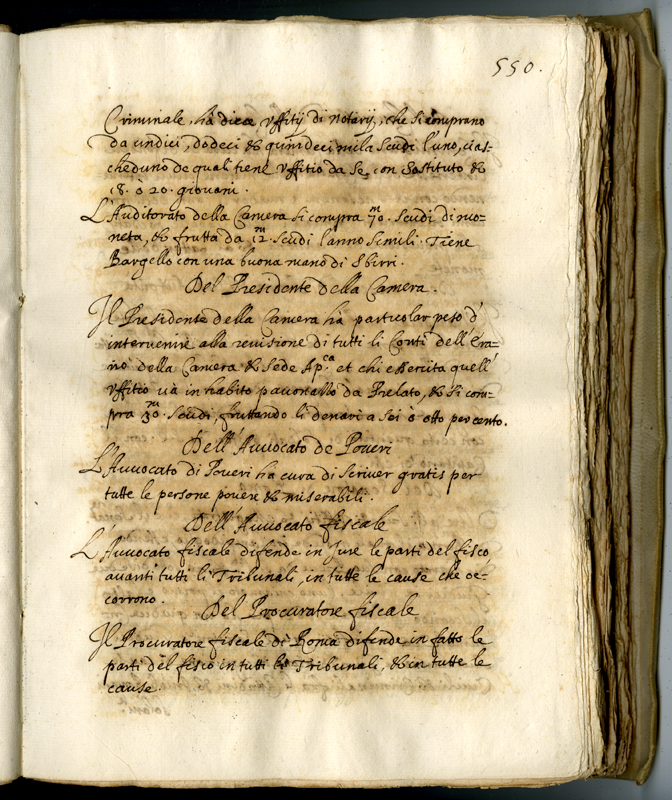 550.
Criminale, hà diece uffitij di notarij, che si comprano
da undici, dodeci & quindeci mila scudi l'uno, cias=
cheduno de quali tiene uffitio da se, con sostituto &
18. ò 20. giovani.
L'Auditorato della Camera si compra 70.m scudi di mo=
neta, & frutta da 12.m scudi l'anno simili. Tiene
Bargello con una buona mano di sbirri.
Del Presidente della Camera.
Il Presidente della Camera hà particolar peso d'
intervenire alla revisione di tutti li Conti dell'Era=
rio della Camera & Sede Ap.ca et chi essercita quell'
uffitio và in habito pavonazzo da Prelato, & si com=
pra 30.m scudi, fruttando li denari a sei ò otto per cento.
Dell'Avvocato de Poveri
L'Avvocato di Poveri ha cura di scriver gratis per
tutte le persone povere & miserabili.
Dell'Avvocato fiscale
L'Avvocato fiscale difende in Jure le parti del fisco
avanti tutti li Tribunali, in tutte le cause che oc=
corrono.
Del Procuratore fiscale
Il Procuratore fiscale di Roma difende in fatto le
parti del fisco in tutti li Tribunali, & in tutte le
cause.